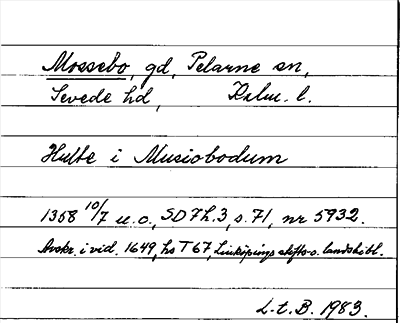 Mossebo, gd, Pelarne sn,
Sevede hd, Kalm. l.
Hulte i Musiobodum
1358 10/7 u.o., SD 7h.3, s.71, nr 5932.
Avskr. i vid. 1649, hs T67, Linköpings stifts-o. landsbibl.
L.t.B. 1983.